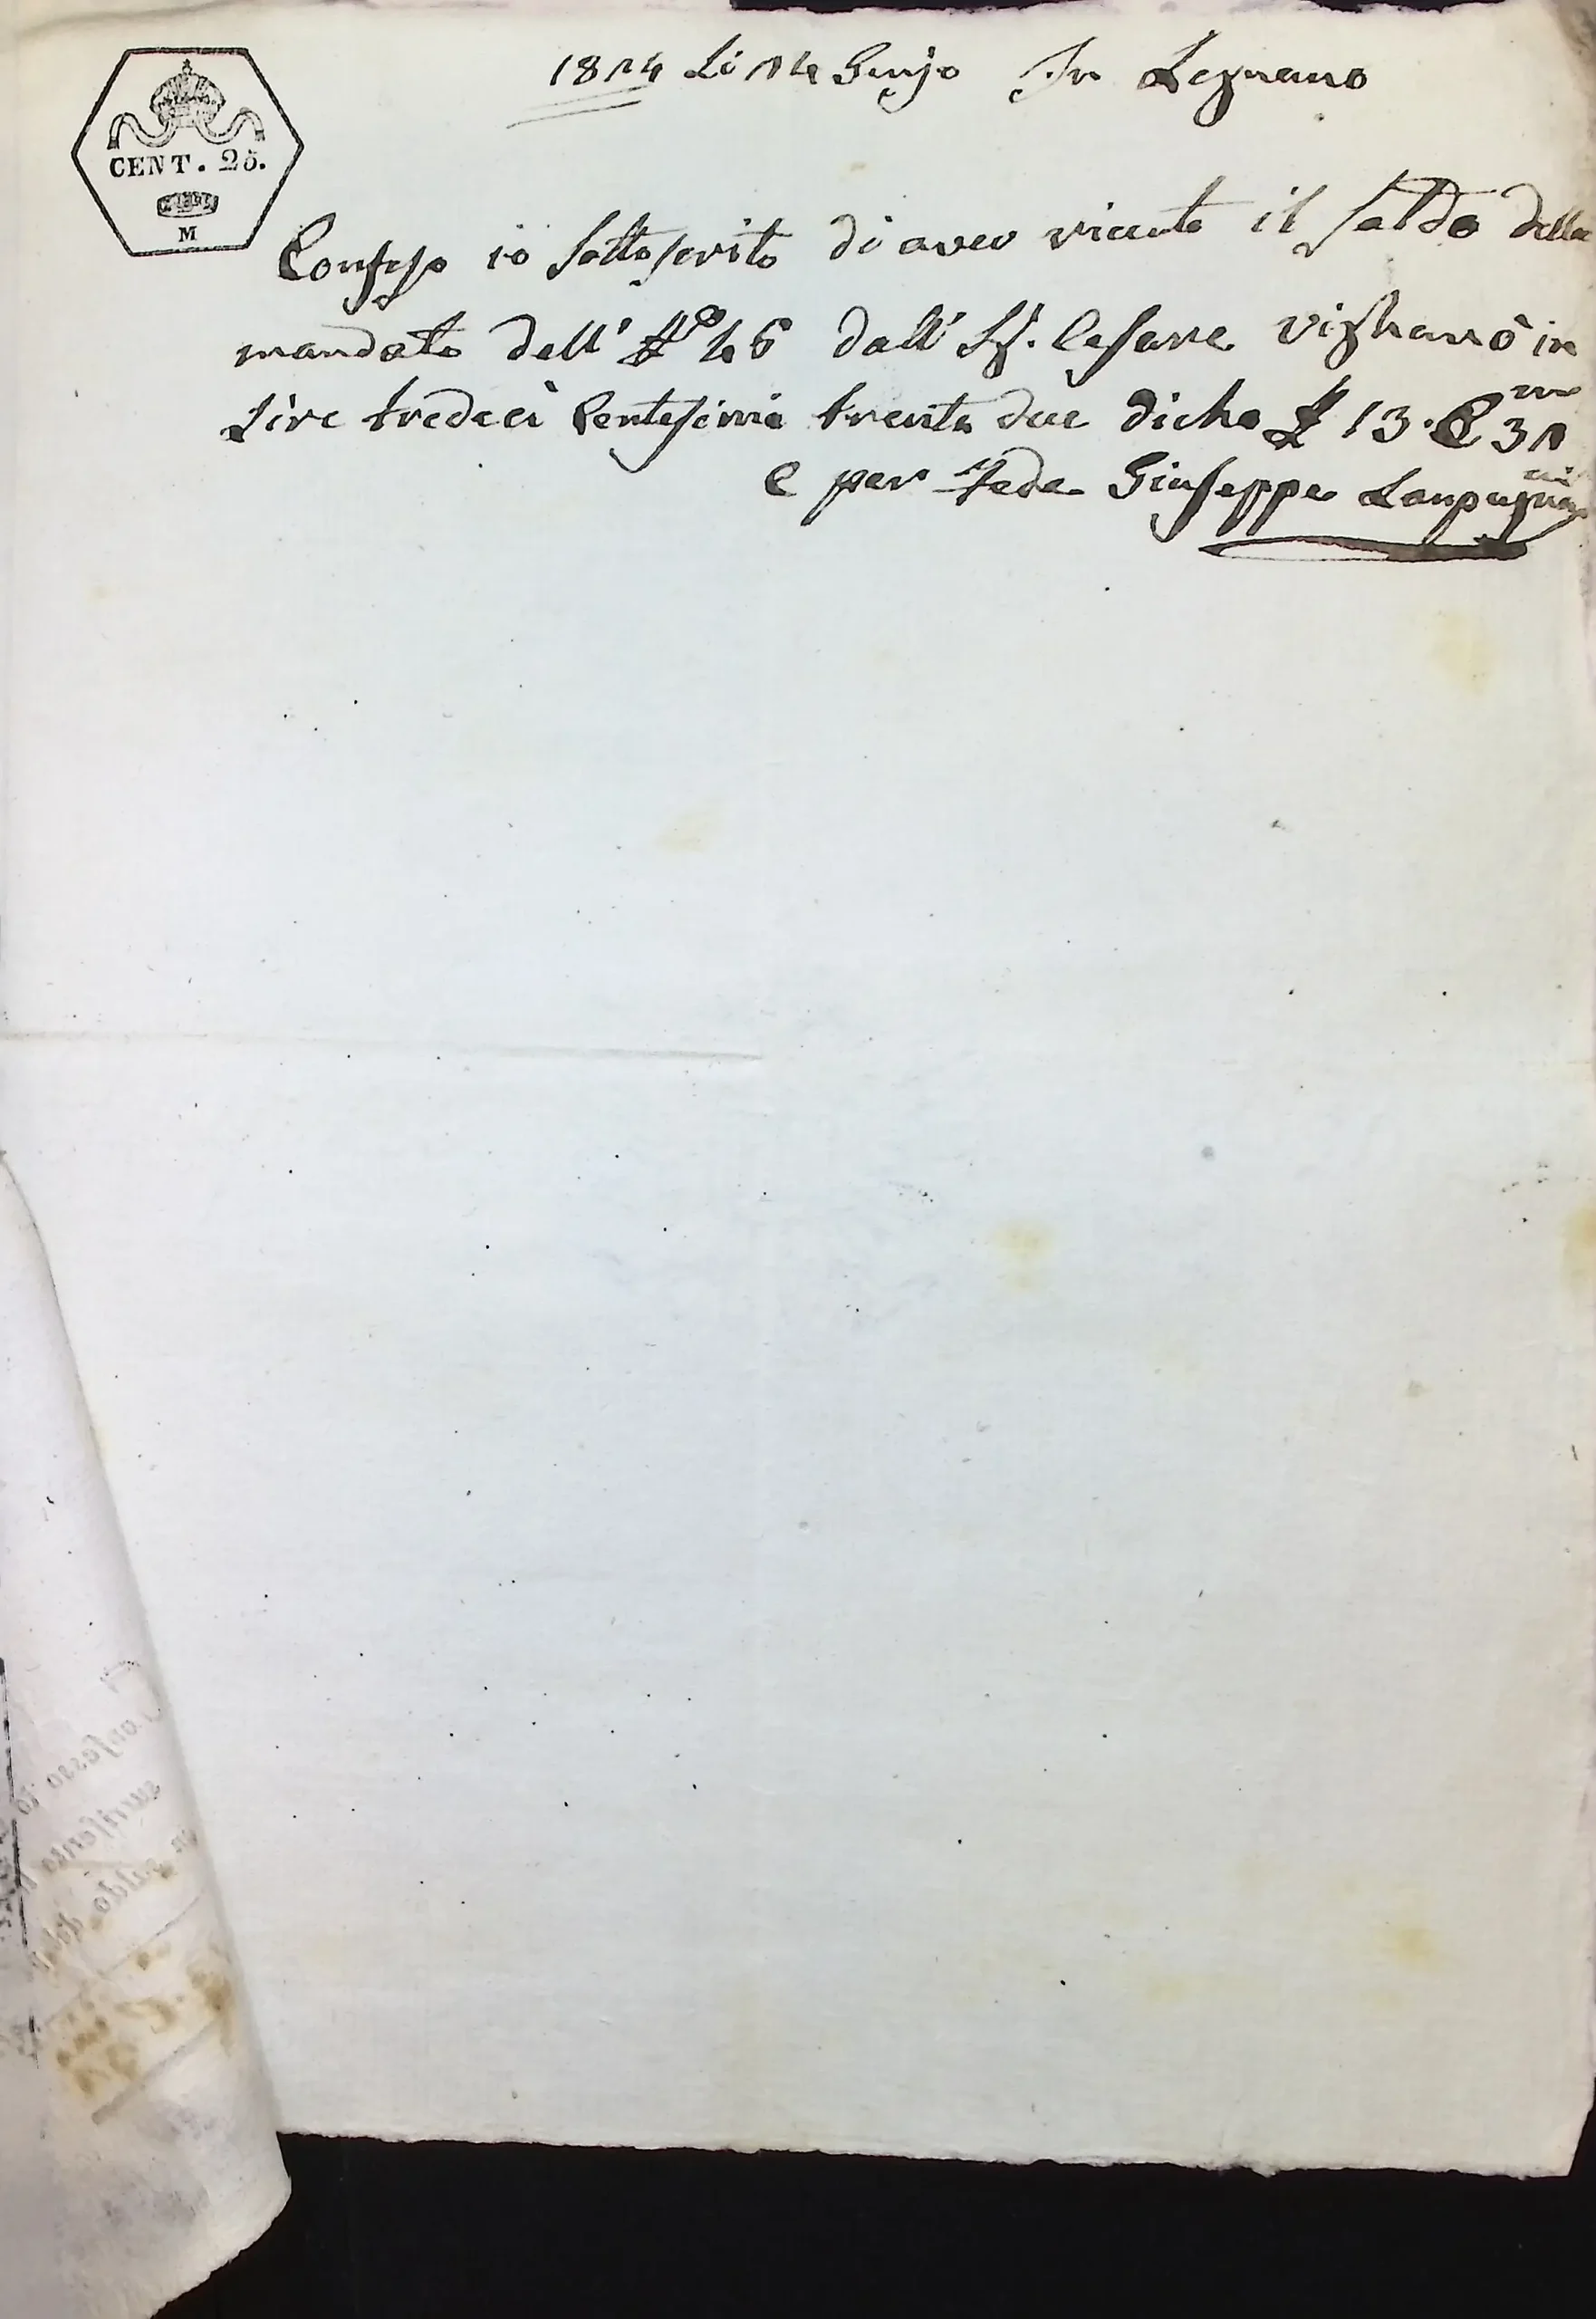 CENT. 25.
M
1814 Li 14 Gunjo In Legnano
Confesso io sottoscrito di aver riceuto il saldo della
mandato dell' N.o 46 dall' Sig. Cesare Vighanò in
Lire tredeci Centesimi trenta due dicho £ 13. C.mi 32
e per Fede Giuseppe
Confesso io
saldo